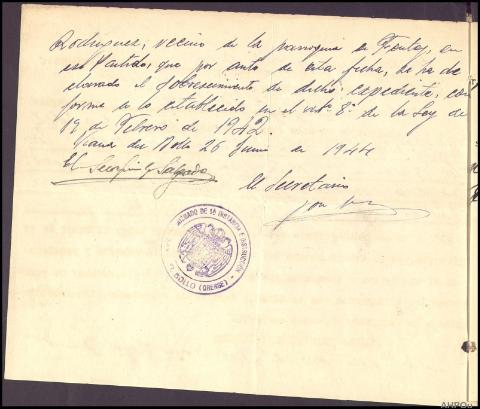 Rodriguez, vecino de la parroquia de Fentes, en
ese Partido, que por auto de esta fecha, se ha de
clarado el sobreseimiento de dicho expediente, con
forme a lo establecido en el artº 8º de la Ley de
19 de Febrero de 1942.
Viana del Bollo 26 Junio de 1944
El Secretario
JUZGADO DE 1ª INSTANCIA E INSTRUCCIÓN
BOLLO (ORENSE)
AHPOu